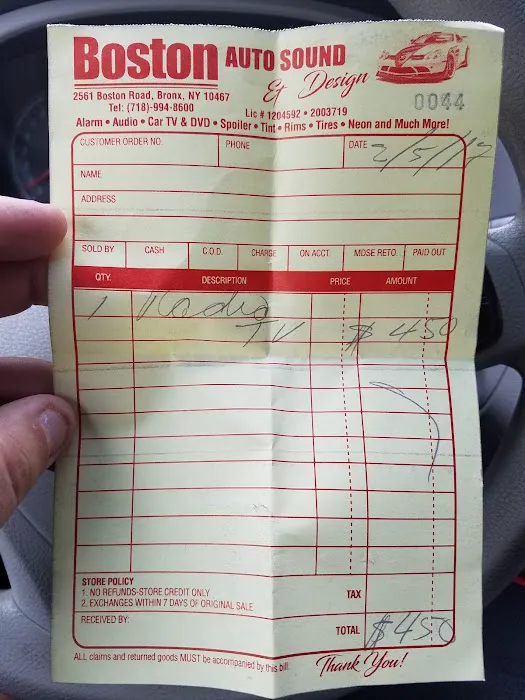 Boston AUTO SOUND
& Design
2561 Boston Road, Bronx, NY 10467
Tel: (718)-994-8600
Lic # 1204592 • 2003719
0044
Alarm • Audio • Car TV & DVD • Spoiler • Tint • Rims • Tires • Neon and Much More!
CUSTOMER ORDER NO. PHONE DATE 2/5/17
NAME
ADDRESS
SOLD BY CASH C.O.D. CHARGE ON ACCT. MDSE RETD. PAID OUT
QTY. DESCRIPTION PRICE AMOUNT
1 Radio
TV $450
STORE POLICY
1. NO REFUNDS-STORE CREDIT ONLY
2. EXCHANGES WITHIN 7 DAYS OF ORIGINAL SALE
TAX
RECEIVED BY:
TOTAL $450
ALL claims and returned goods MUST be accompanied by this bill.
Thank You!